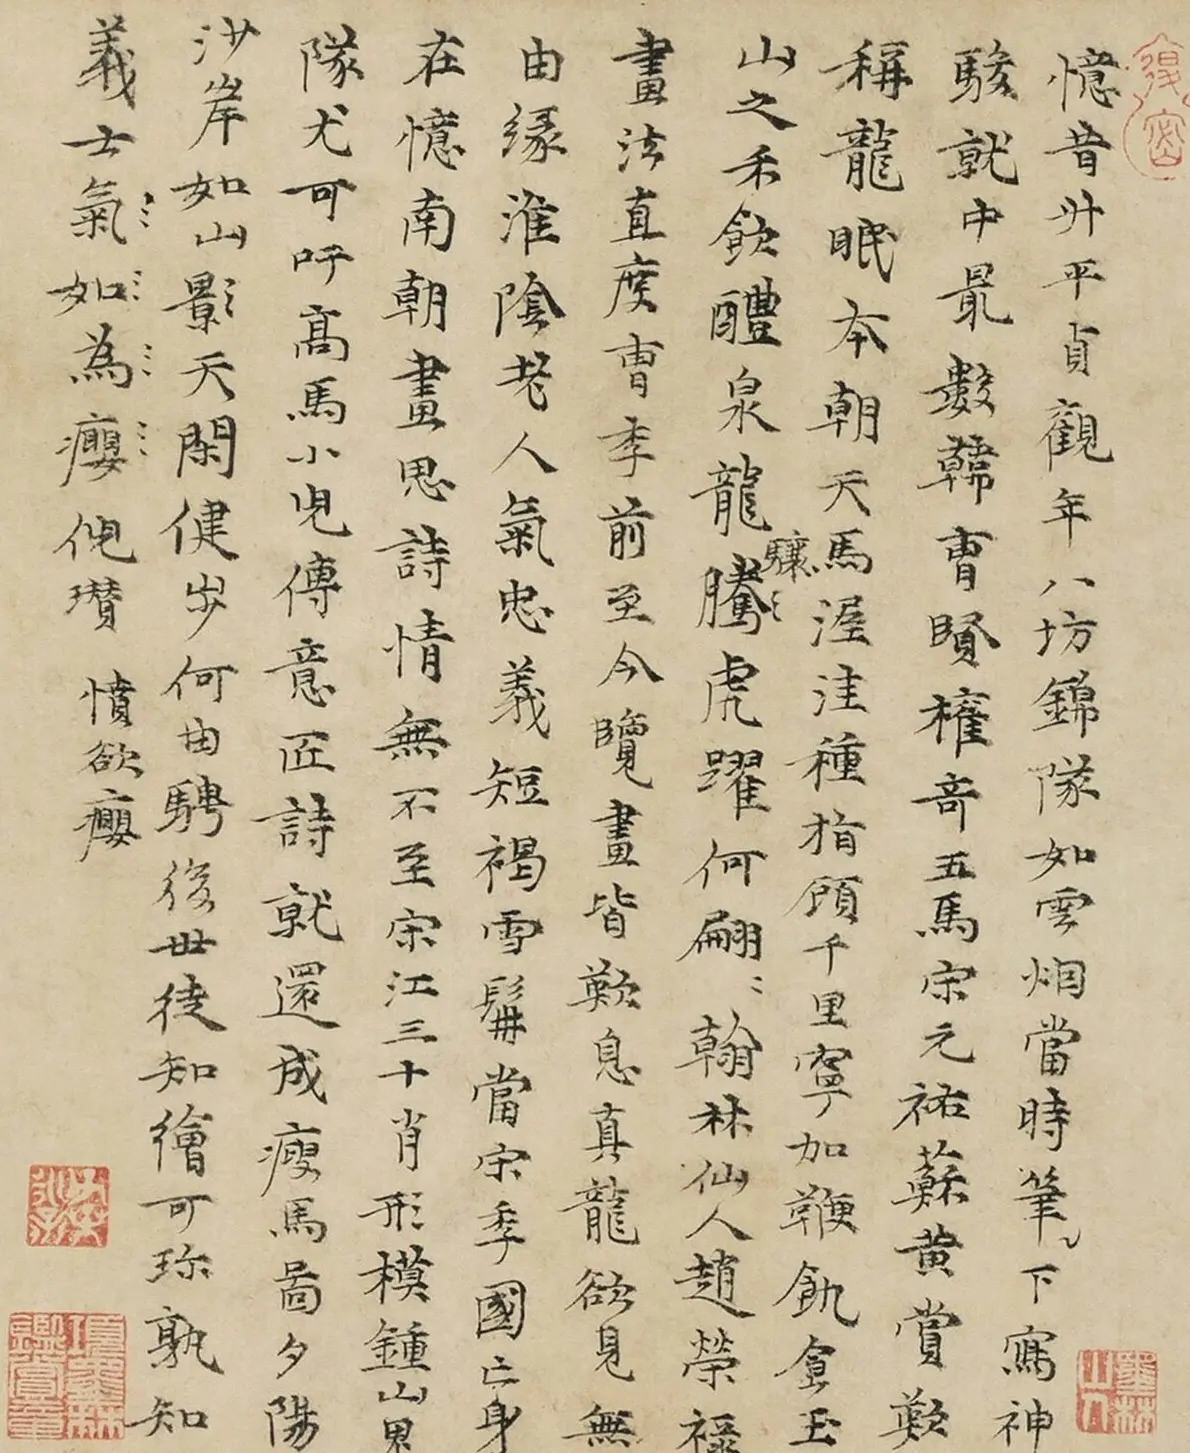 憶昔升平貞觀年八坊錦隊如雲烟當時筆下寫神
駿就中最數韓曹賢權竒五馬宋元祐蘇黄賞歎
稱龍眠本朝天馬渥洼種指顧千里寧加鞭飢食玉
山之禾飲醴泉龍騰驤〻虎躍何翩〻翰林仙人趙榮禄
畫法直度曹季前至今覽畫皆歎息真龍欲見無
由緣淮陰老人氣忠義短褐雪髯當宋季國亡身
在憶南朝畫思詩情無不至宋江三十肖形模鍾山鬼
隊尤可吁高馬小兒傳意匠詩就還成瘦馬啚夕陽
沙岸如山影天閑健步何由騁後世徒知繪可珎孰知
義士氣如為癭
憤欲癭
復密
墨林山人
項墨林鑑賞章